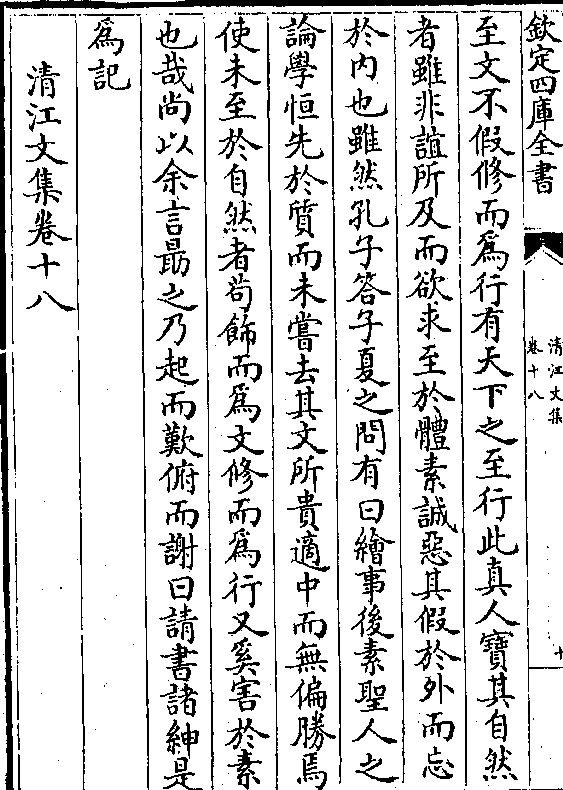 欽定四庫全書
清江文集
卷十八
十
至文不假修而為行有天下之至行此真人寶其自然
者雖非誼所及而欲求至於體素誠惡其假於外而忘
於内也雖然孔子答子夏之問有曰繪事後素聖人之
論學恒先於質而未嘗去其文所貴適中而無偏勝焉
使未至於自然者苟飾而為文修而為行又奚害於素
也哉尚以余言朂之乃起而歎俯而謝曰請書諸紳是
為記
清江文集卷十八